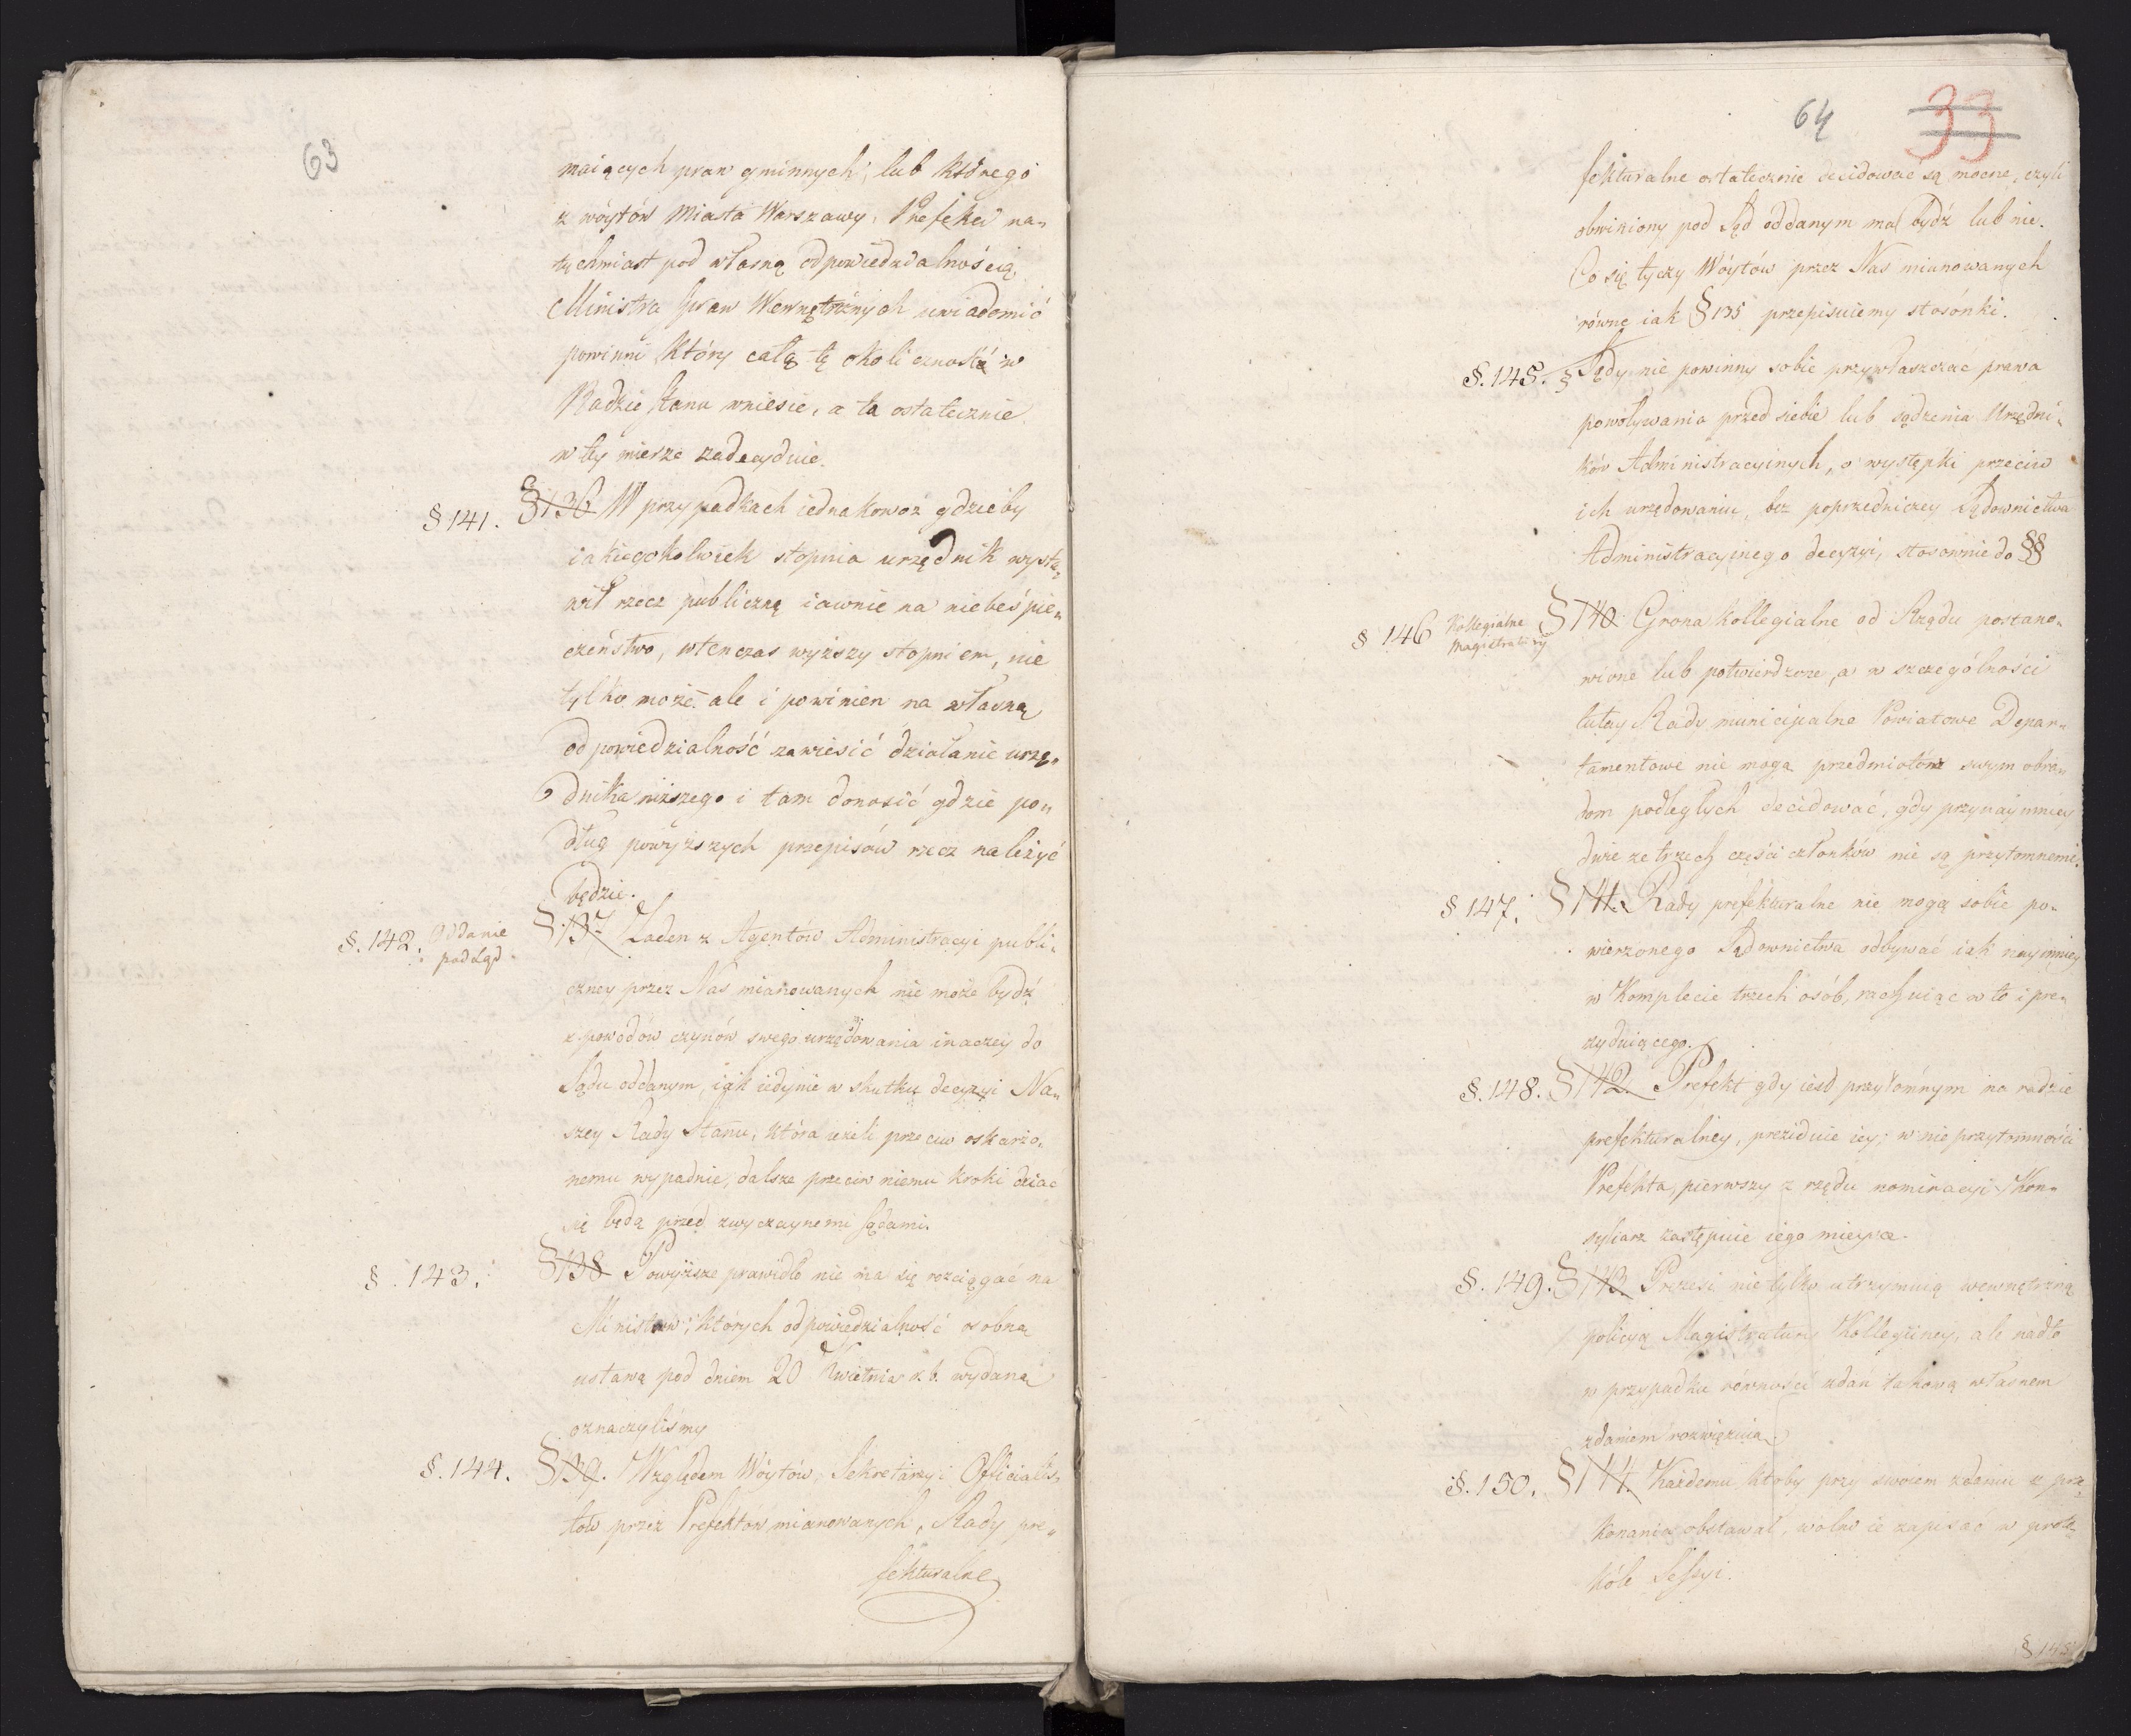 63
maiących praw gminnych; lub którego
z wóytów Miasta Warszawy, Prefekci na„
tychmiast pod własną odpowiedzialnością,
Ministra Spraw Wewnętrznych uwiadomić
powinni który całą tę okoliczność w
Radzie Stanu wniesie, a ta ostatecznie
w tey mierze zadecyduie.
§ 141. § 136 W przypadkach iednakowoż gdzieby
iakiegokolwiek stopnia urzędnik wysta„
wił rzecz publiczną iawnie na niebeśpie„
czeństwo, wtenczas wyższy stopniem, nie
tylko może ale i powinien na własną
odpowiedzialność zawiesić działanie urzę„
dnika niższego i tam donosić gdzie po„
dług powyższych przepisów rzecz należyć
będzie.
§. 142. Oddanie pod Sąd. § 137 Żaden z Agentów Administracyi publi„
czney przez Nas mianowanych nie może bydź
z powodów czynów swego urzędowania inaczey do
Sądu oddanym, iak iedynie w skutku decyzyi Na„
szey Rady Stanu; która ieżeli przeciw oskarżo„
nemu wypadnie, dalsze przeciw niemu kroki dziać
się będą przed zwyczaynemi Sądami.
§. 143. § 138 Powyższe prawidło nie ma się rozciągać na
Ministrów, których odpowiedzialność osobną
ustawą pod dniem 20 Kwietnia r. b. wydaną
oznaczyliśmy
§. 144. § 139. Względem Wóytów, Sekretarzy i Officialis„
tów przez Prefektów mianowanych, Rady pre„
fekturalne
64 33
fekturalne ostatecznie decidować są mocne, czyli
obwiniony pod Sąd oddanym ma bydź lub nie.
Co się tyczy Wóytów przez Nas mianowanych
równe iak § 135 przepisuiemy stosónki.
§. 145. § Sądy nie powinny sobie przywłaszczać prawa
powoływania przed siebie lub sądzenia Urzędni„
ków Administracyinych, o występki przeciw
ich urzędowaniu, bez poprzedniczey Sądownictwa
Administracyinego decyzyi, stosownie do §§
§ 146 Kollegialne Magistratury § 140 Grona kollegialne od Rządu postano„
wione lub potwierdzone, a w szczególności
tutay Rady municipalne Powiatowe Depar„
tamentowe nie mogą przedmiotów swym obra„
dom podległych decidować, gdy przynaymniey
dwie ze trzech części członków nie są przytomnemi.
§ 147. § 141. Rady prefekturalne nie mogą sobie po„
wierzonego Sądownictwa odbywać iak naymniey
w Komplecie trzech osób, rachuiąc w to i pre„
zyduiącego.
§. 148. § 142. Prefekt gdy iest przytomnym na radzie
prefekturalney, preziduie iey; w nieprzytomności
Prefekta, pierwszy z rzędu nominacyi Kon„
syliarz zastępuie iego mieysce.
§. 149. § 143 Prezesi nie tylko utrzymuią wewnętrzną
policyą Magistratury Kollegiiney, ale nadto
w przypadku równości zdań takową własnem
zdaniem rozwięzuią.
§. 150. § 144. Każdemu, ktoby przy swoiem zdaniu z prze„
konania obstawał, wolno ie zapisać w proto„
kóle Sessyi.